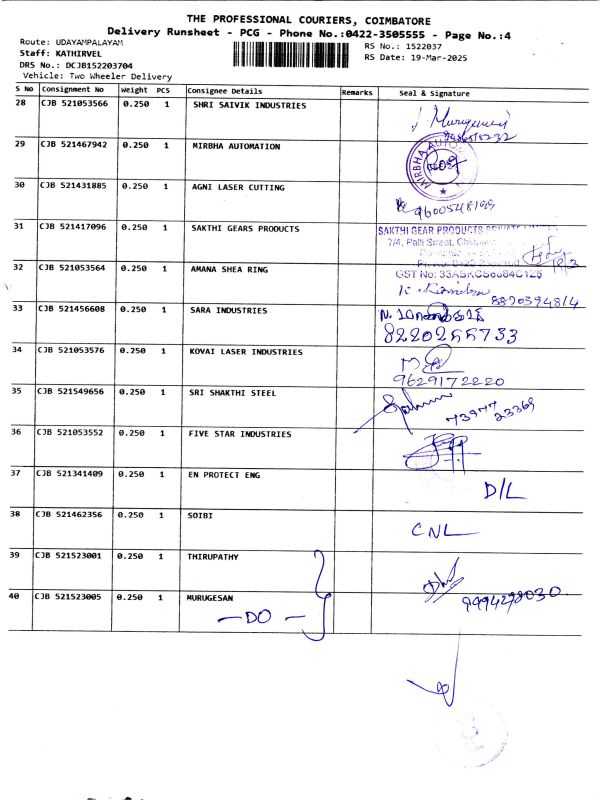 THE PROFESSIONAL COURIERS, COIMBATORE
Delivery Runsheet - PCG - Phone No.:0422-3505555 - Page No.:4
Route: UDAYAMPALAYAM
RS No.: 1522037
Staff: KATHIRVEL
RS Date: 19-Mar-2025
DRS No.: DCJB152203704
Vehicle: Two Wheeler Delivery
S No Consignment No Weight PCS Consignee Details Remarks Seal & signature
28 CJB 521053566 0.250 1 SHRI SAIVIK INDUSTRIES
29 CJB 521467942 0.250 1 MIRBHA AUTOMATION
MIRBHA AUTO
30 CJB 521431885 0.250 1 AGNI LASER CUTTING
31 CJB 521417096 0.250 1 SAKTHI GEARS PRODUCTS
SAKTHI GEAR PRODUCTS PRIVATE LIMITED
7/4, Palli Street,
GST No:
32 CJB 521053564 0.250 1 AMANA SHEA RING
8820394814
33 CJB 521456608 0.250 1 SARA INDUSTRIES
8220255733
34 CJB 521053576 0.250 1 KOVAI LASER INDUSTRIES
9629172220
35 CJB 521549656 0.250 1 SRI SHAKTHI STEEL
73977 23369
36 CJB 521053552 0.250 1 FIVE STAR INDUSTRIES
37 CJB 521341409 0.250 1 EN PROTECT ENG
D/L
38 CJB 521462356 0.250 1 SOIBI
CNL
39 CJB 521523001 0.250 1 THIRUPATHY
40 CJB 521523005 0.250 1 MURUGESAN
9994298030
- DO -